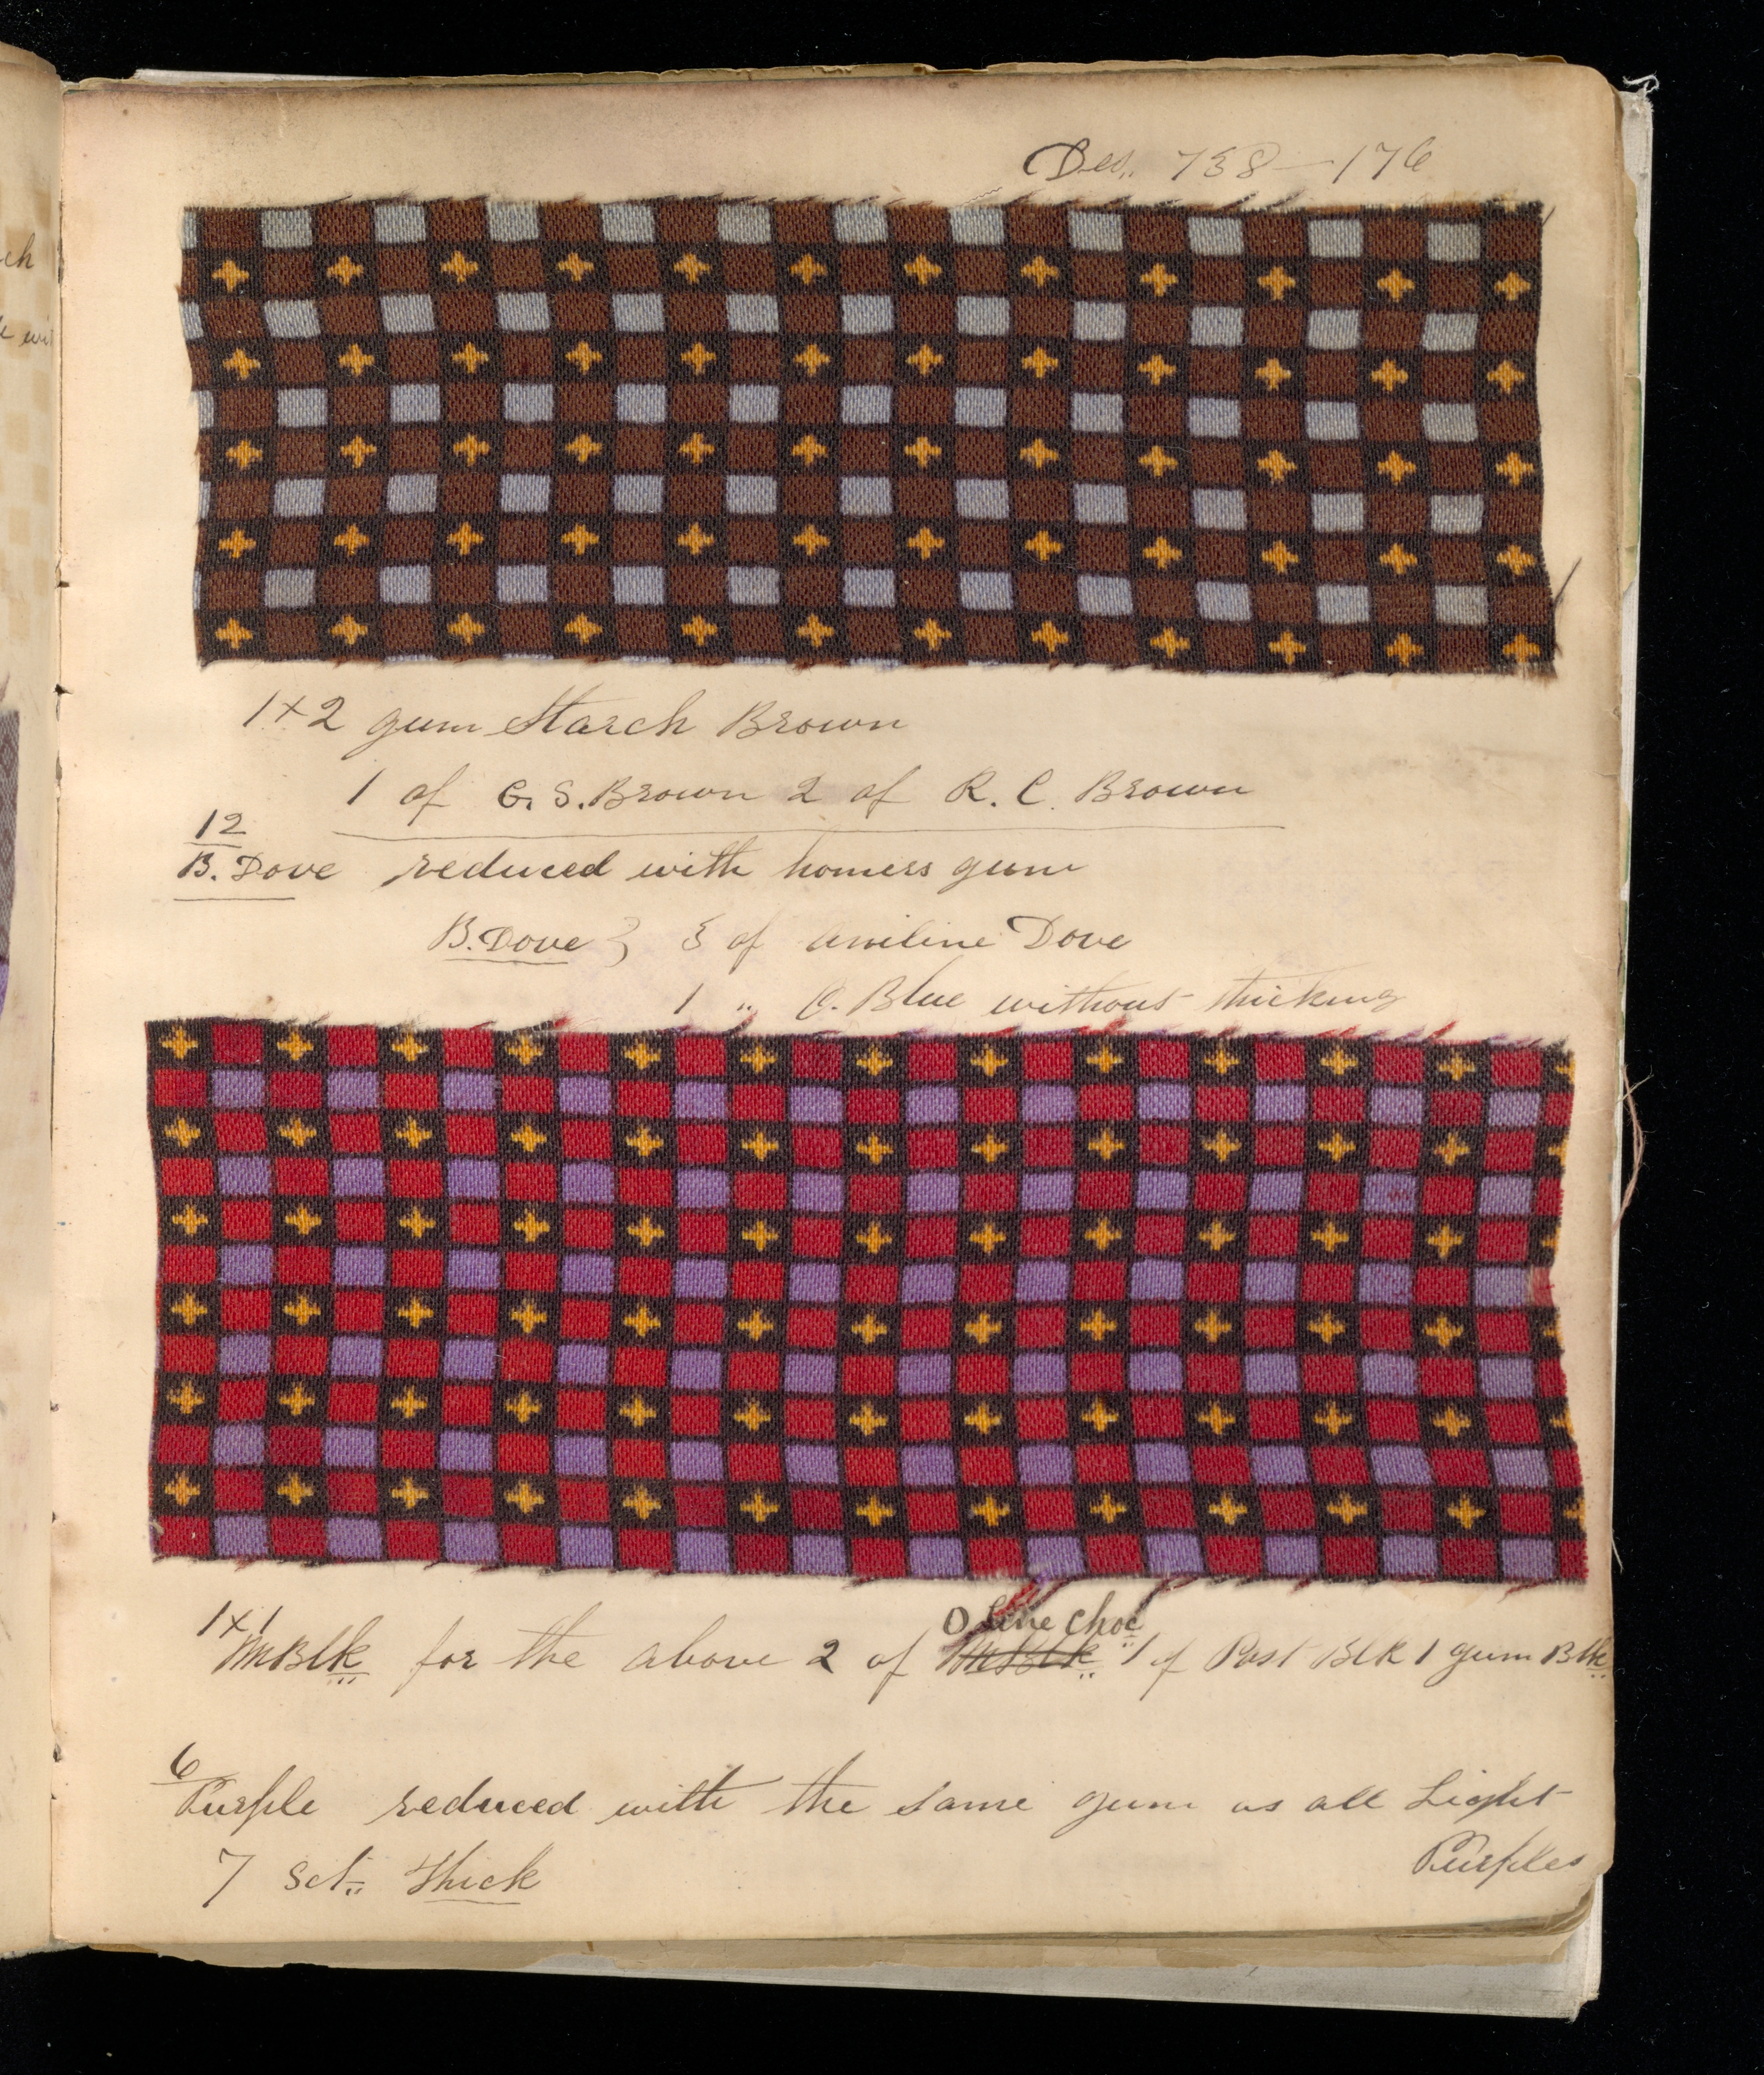 Des. 738 — 176
1x2 gum Starch Brown
1 of G. S. Brown 2 of R. C. Brown
12
B. Dove reduced with homers gum
B. Dove } 3 of Aniline Dove
1 " C. Blue without thicking
1x1
MBlk for the above 2 of MBlk 1 of Past Blk 1 gum Blk
O Line Choc
6
Purple reduced with the same gum as all Light
Purples
7 Sct. Thick
ch